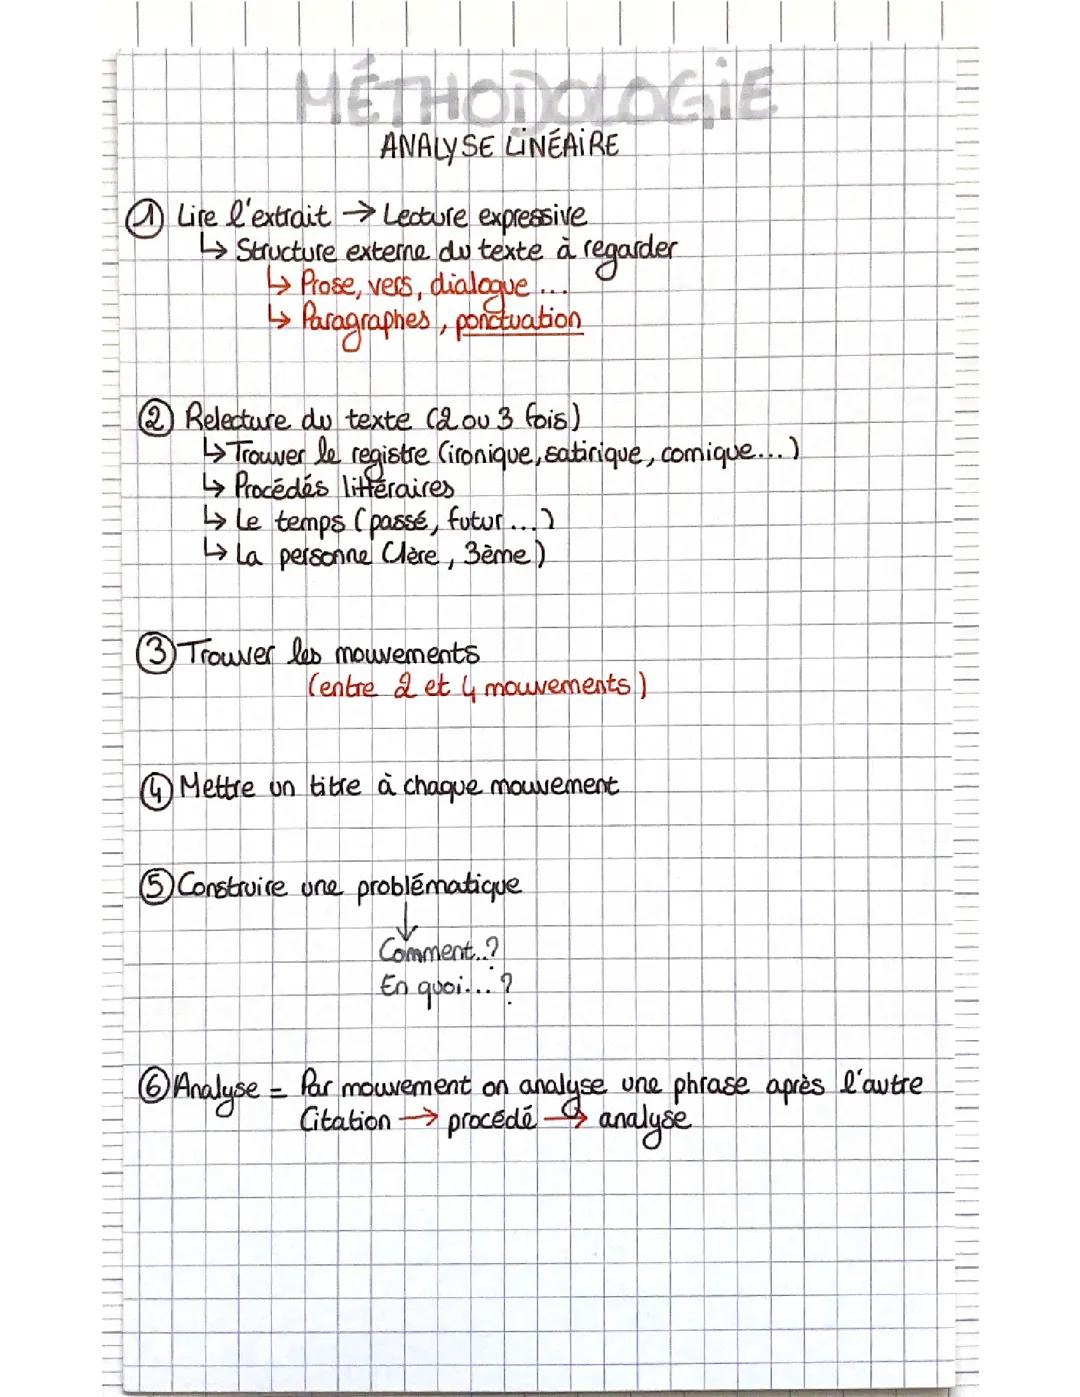 MÉTHODOLOGIE
ANALYSE LINÉAIRE
① Lire l'extrait → Lecture expressive
↳ Structure externe du texte à regarder
↳ Prose, vers, dialogue ...
↳ Paragraphes, ponctuation
② Relecture du texte (2 ou 3 fois)
↳ Trouver le registre (ironique, satirique, comique...)
↳ Procédés littéraires
↳ Le temps (passé, futur ...)
↳ La personne (1ère, 3ème)
③ Trouver les mouvements
(entre 2 et 4 mouvements)
④ Mettre un titre à chaque mouvement
⑤ Construire une problématique
↓
Comment..?
En quoi...?
⑥ Analyse = Par mouvement on analyse une phrase après l'autre
Citation → procédé → analyse